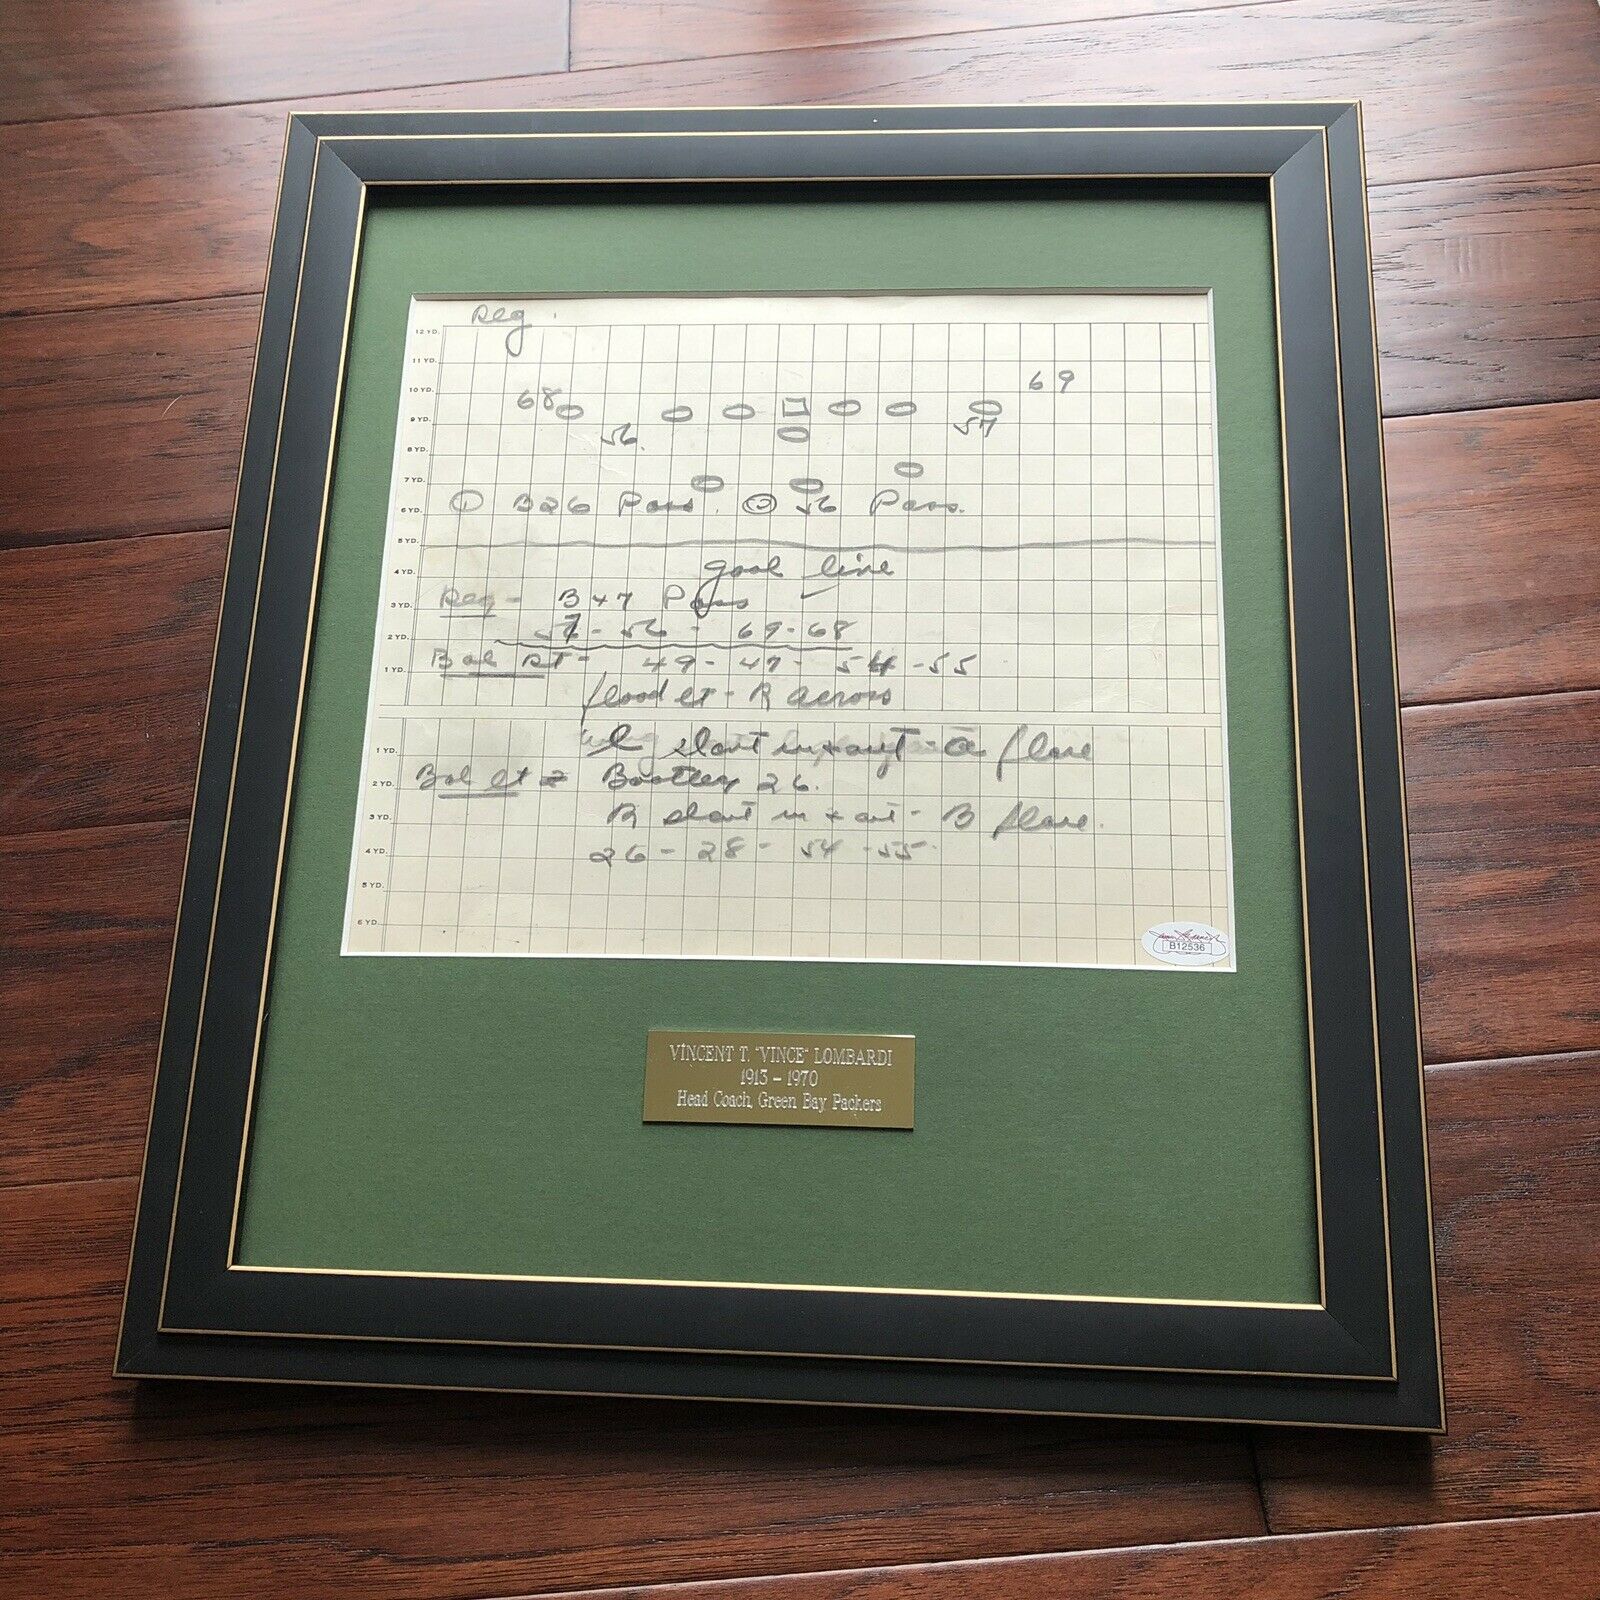 Reg.
12 YD.
11 YD.
10 YD.
9 YD.
8 YD.
7 YD.
6 YD.
5 YD.
4 YD.
3 YD.
2 YD.
1 YD.
1 YD.
2 YD.
3 YD.
4 YD.
5 YD.
6 YD.
68
69
56.
57
① B26 Pass. ② 56 Pass.
goal line
Reg - B + 7 Pass
57 - 56 - 69 - 68
RT - 49 - 47 - 54 - 55
flood lt - R across
L slant in + out - flare
lt = Bootleg 26.
R slant in + out - B flare.
26 - 28 - 54 - 55.
B12536
VINCENT T. "VINCE" LOMBARDI
1913 - 1970
Head Coach, Green Bay Packers